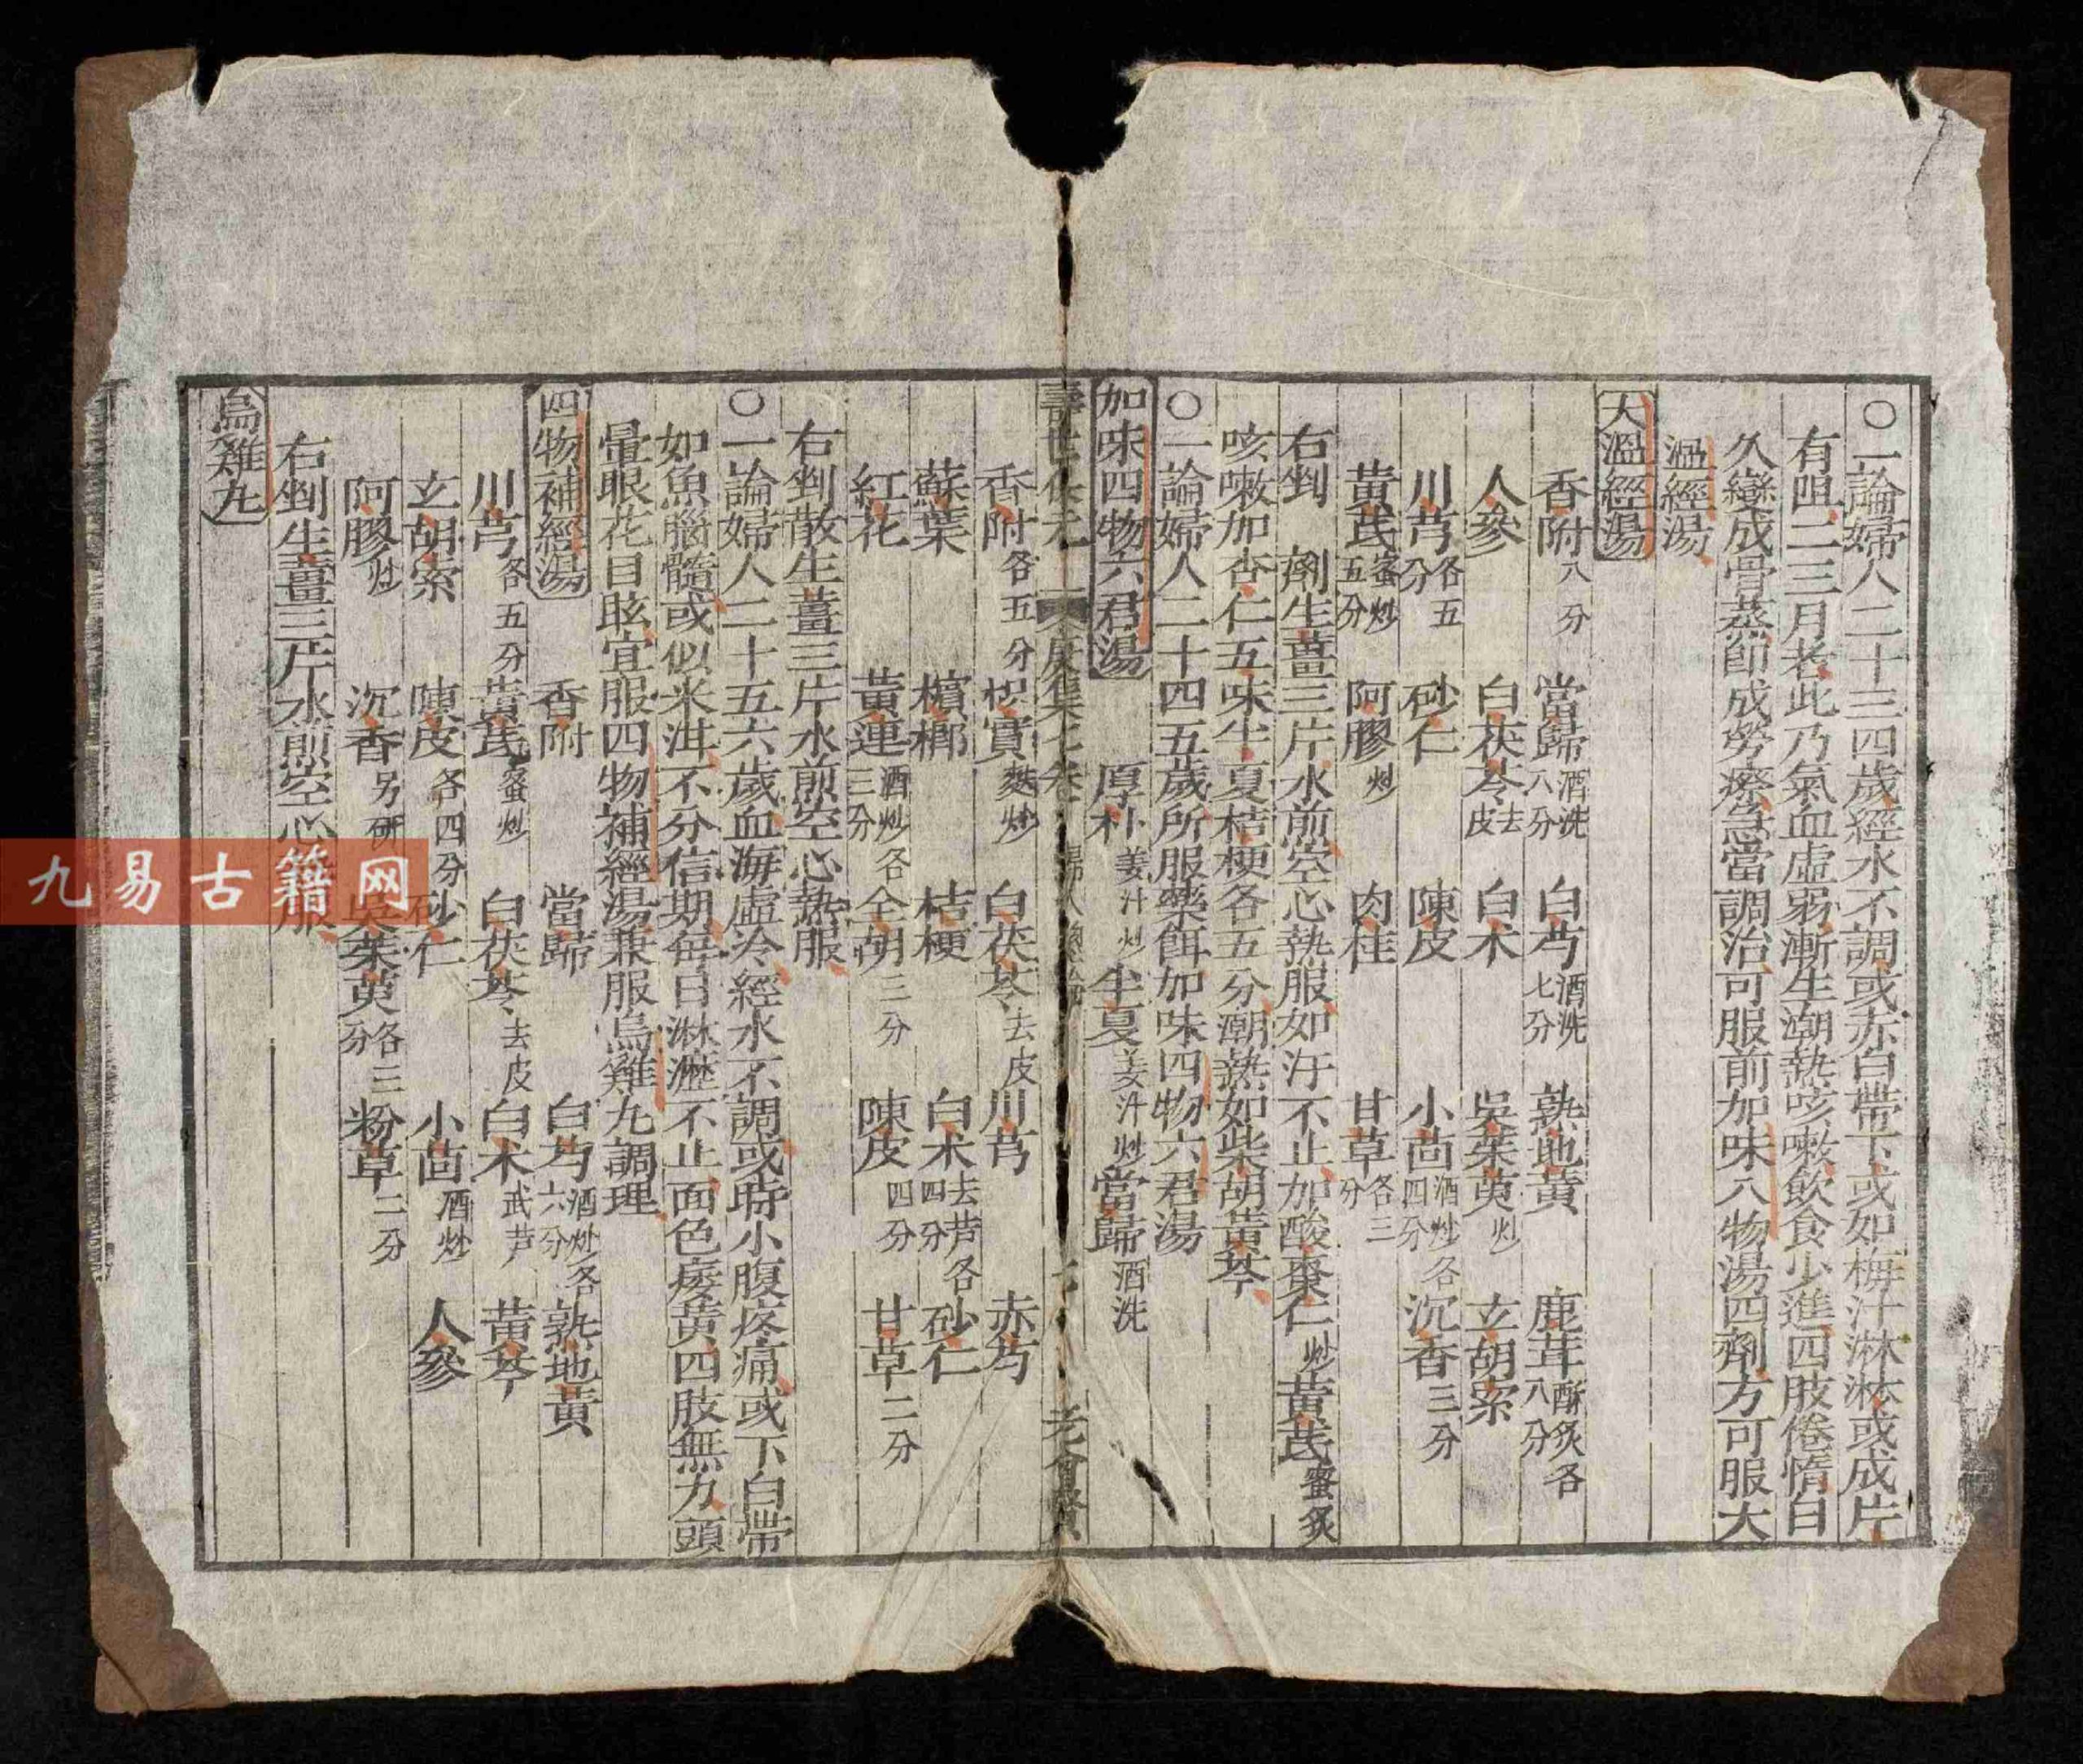 ○一論婦人二十三四歲經水不調或赤白帶下或如梅汁淋淋或成片
有阻二三月者此乃氣血虛弱漸生潮熱咳嗽飲食少進四肢倦惰日
久變成骨蒸節成勞瘵急當調治可服前加味八物湯四劑方可服大
溫經湯
大溫經湯
香附八分 當歸酒洗八分 白芍酒洗七分 熟地黃 鹿茸酥炙八分各
人參 白茯苓去皮 白术 吳茱萸炒 玄胡索
川芎各五分 砂仁 陳皮 小茴酒炒四分各 沉香三分
黃芪蜜炒五分 阿膠炒 肉桂 甘草各三分
右剉 劑生薑三片水煎空心熱服如汗不止加酸棗仁炒黃芪蜜炙
咳嗽加杏仁五味半夏桔梗各五分潮熱如柴胡黃芩
○一論婦人二十四五歲所服藥餌加味四物六君湯
加味四物六君湯 厚朴姜汁炒 半夏姜汁炒 當歸酒洗
壽世保元 庚集七卷 婦人
香附各五分 枳實麩炒 白茯苓去皮 川芎 赤芍
蘇葉 檳榔 桔梗 白术去芦四分各 砂仁
紅花 黃連酒炒三分各 全胡三分 陳皮四分 甘草二分
右剉散生薑三片水煎空心熱服
○一論婦人二十五六歲血海虛冷經水不調或時小腹疼痛或下白帶
如魚腦髓或似米泔不分信期每日淋瀝不止面色痿黃四肢無力頭
暈眼花目眩宜服四物補經湯兼服烏雞丸調理
四物補經湯 香附 當歸 白芍酒炒六分各 熟地黃
川芎各五分 黃芪蜜炒 白茯苓去皮 白术武芦 黃芩
玄胡索 陳皮各四分 砂仁 小茴酒炒 人參
阿膠炒 沉香另研 吳茱萸各三分 粉草二分
右剉生薑三片水煎空心 服
烏雞丸
九易古籍网